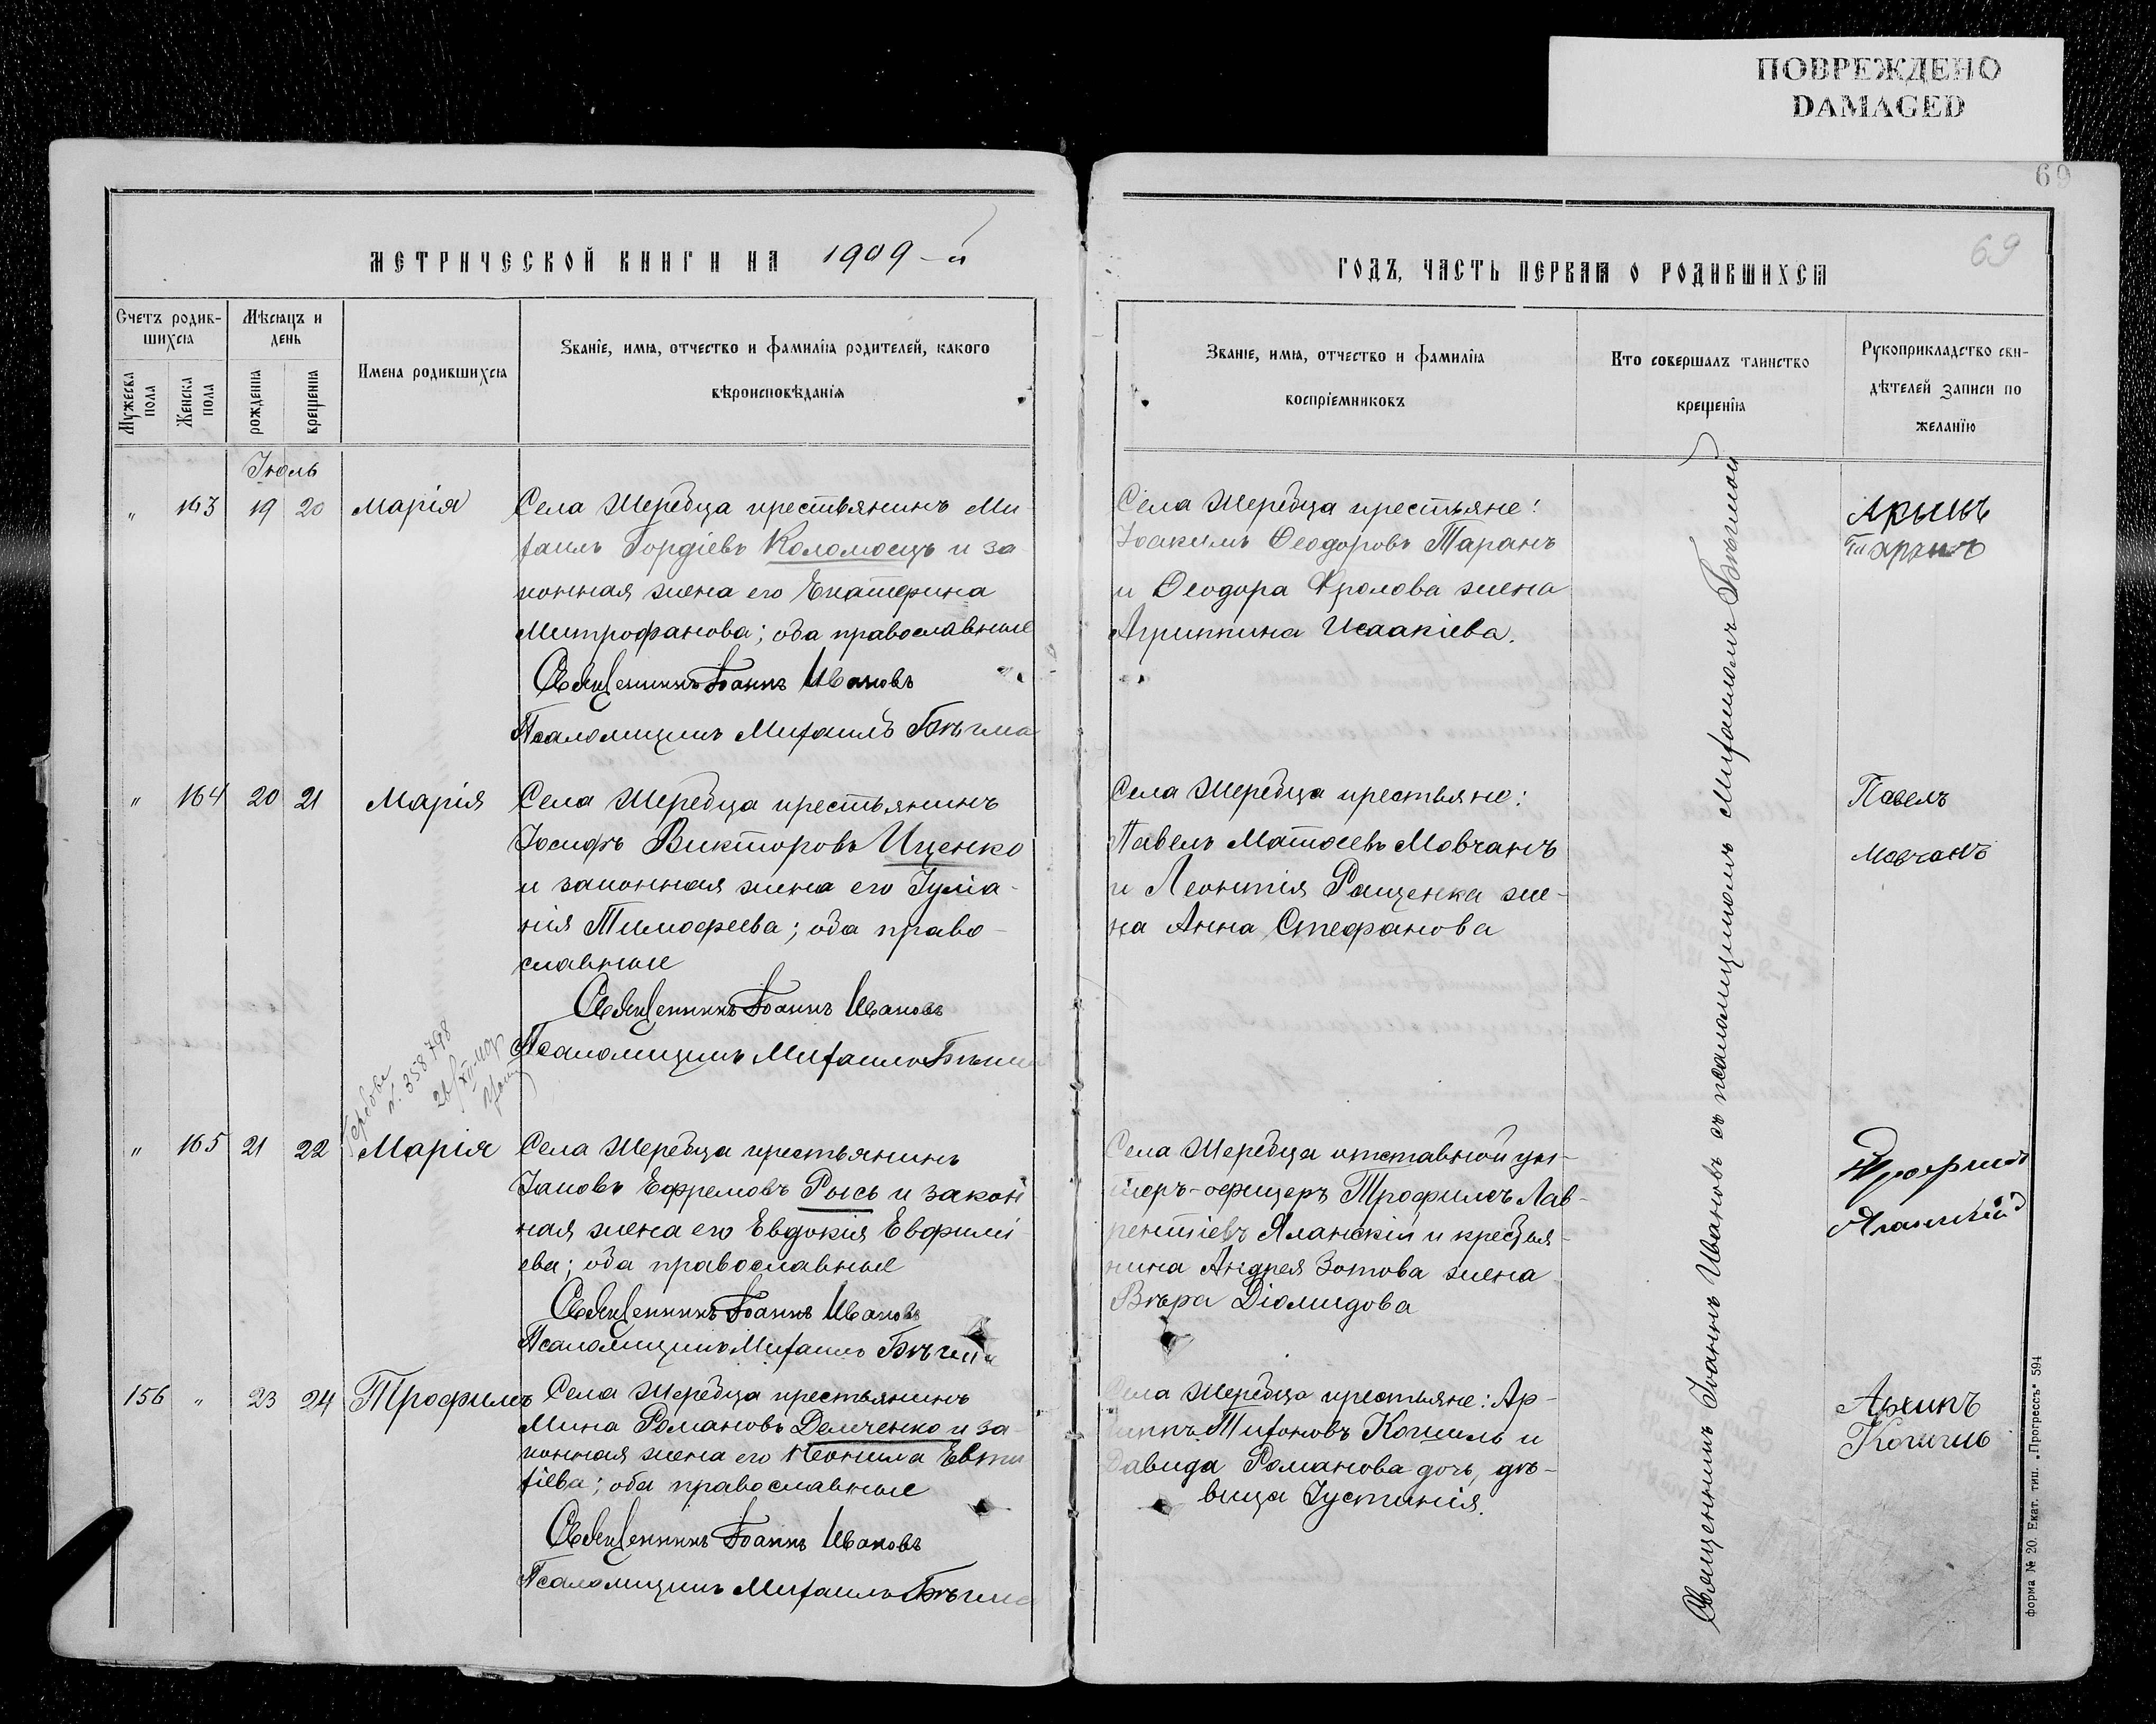 ПОВРЕЖДЕНО
DAMAGED
69
МЕТРИЧЕСКОЙ КНИГИ НА 1909-й
ГОДЪ, ЧАСТЬ ПЕРВАЯ О РОДИВШИХСЯ
69
Счетъ родив-
шихся
Мужеска пола
Женска пола
Мѣсяцъ и
день
рожденія
крещенія
Имена родившихся
Званіе, имя, отчество и фамилія родителей, какого
вѣроисповѣданія
Званіе, имя, отчество и фамилія
воспріемниковъ
Кто совершалъ таинство
крещенія
Рукоприкладство сви-
дѣтелей записи по
желанію
Іюль
„ 163 19 20 Марія
Села Жеребца крестьянинъ Ми-
хаилъ Гордіевъ Коломоецъ и за-
конная жена его Екатерина
Митрофанова; оба православные
Священникъ Іоаннъ Ивановъ
Псаломщикъ Михаилъ Бѣгма
Села Жеребца крестьяне:
Іоакимъ Ѳеодоровъ Таранъ
и Ѳеодора Фролова жена
Агриппина Исаакіева.
Таранъ
„ 164 20 21 Марія
Села Жеребца крестьянинъ
Іосифъ Викторовъ Ищенко
и законная жена его Іуліа-
нія Тимофеева; оба право-
славные
Священникъ Іоаннъ Ивановъ
Псаломщикъ Михаилъ Бѣгма
Села Жеребца крестьяне:
Павелъ Матѳеевъ Мовчанъ
и Леонтія Ращенка же-
на Анна Стефанова
Павелъ
Мовчанъ
№ 358798
„ 165 21 22 Марія
Села Жеребца крестьянинъ
Іаковъ Ефремовъ Рысь и закон
ная жена его Евдокія Евфимі
ева; оба православные
Священникъ Іоаннъ Ивановъ
Псаломщикъ Михаилъ Бѣгма
Села Жеребца отставной ун-
теръ-офицеръ Трофимъ Лав-
рентіевъ Яланскій и крестья-
нина Андрея Зотова жена
Вѣра Діомидова
Трофимъ
Яланскій
156 „ 23 24 Трофимъ
Села Жеребца крестьянинъ
Мина Романовъ Демченко и за-
конная жена его Неонила Евти
хіева; оба православные
Священникъ Іоаннъ Ивановъ
Псаломщикъ Михаилъ Бѣгма
Села Жеребца крестьяне: Ар-
хиппъ Тихоновъ Кошиль и
Давида Романова дочь, дѣ-
вица Іустинія.
Архипъ
Кошиль
Священникъ Іоаннъ Ивановъ съ псаломщикомъ Михаиломъ Бѣгмой
форма № 20. Екат. тип. „Прогрессъ“ 594